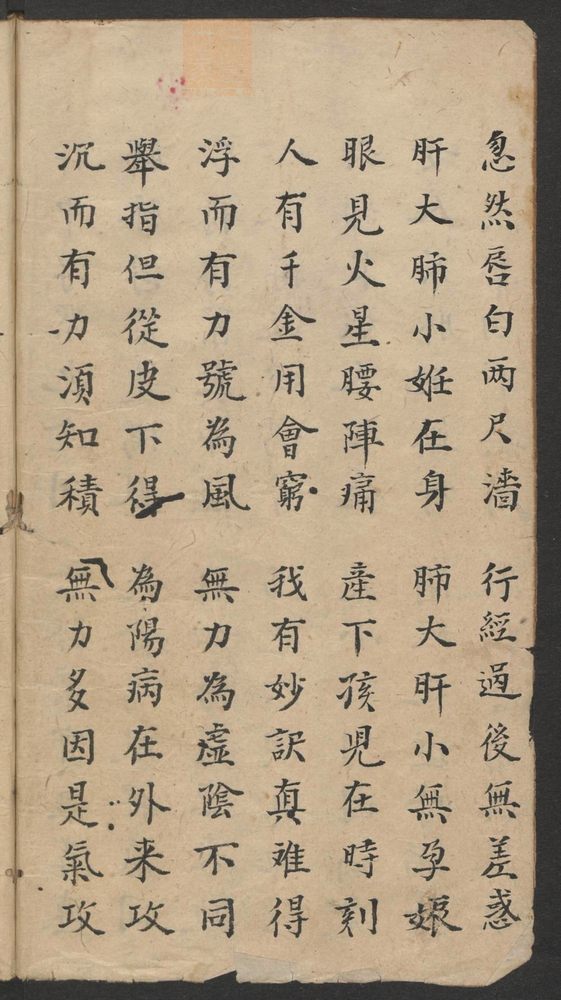 忽然唇白两尺濇 行經過後無差惑
肝大肺小姙在身 肺大肝小無孕娠
眼見火星腰陣痛 產下孩児在時刻
人有千金用會窮 我有妙訣真难得
浮而有力號為風 無力為虛陰不同
舉指但從皮下得 為陽病在外来攻
沉而有力須知積 無力多因是氣攻